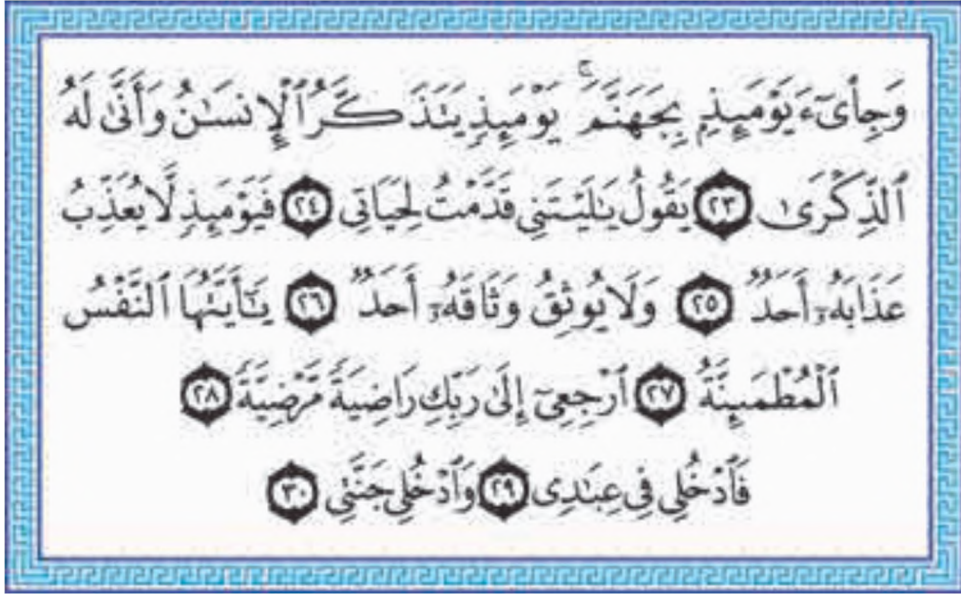 وَجِاْىٓءَ يَوْمَئِذِۭ بِجَهَنَّمَ ۚ يَوْمَئِذٍ يَتَذَكَّرُ ٱلْإِنسَٰنُ وَأَنَّىٰ لَهُ
ٱلذِّكْرَىٰ ٢٣ يَقُولُ يَٰلَيْتَنِى قَدَّمْتُ لِحَيَاتِى ٢٤ فَيَوْمَئِذٍ لَّا يُعَذِّبُ
عَذَابَهُۥٓ أَحَدٌ ٢٥ وَلَا يُوثِقُ وَثَاقَهُۥٓ أَحَدٌ ٢٦ يَٰٓأَيَّتُهَا ٱلنَّفْسُ
ٱلْمُطْمَئِنَّةُ ٢٧ ٱرْجِعِىٓ إِلَىٰ رَبِّكِ رَاضِيَةً مَّرْضِيَّةً ٢٨
فَٱدْخُلِى فِى عِبَٰدِى ٢٩ وَٱدْخُلِى جَنَّتِى ٣٠